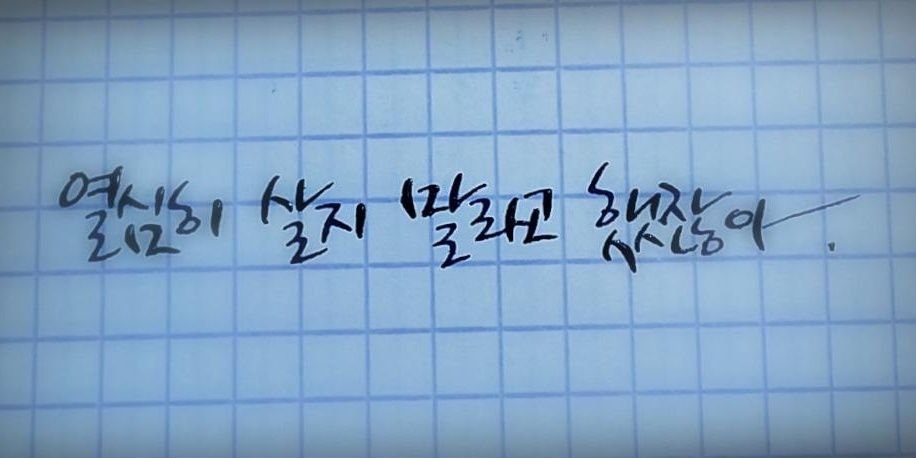 열심히 살지 말라고 했잖아.